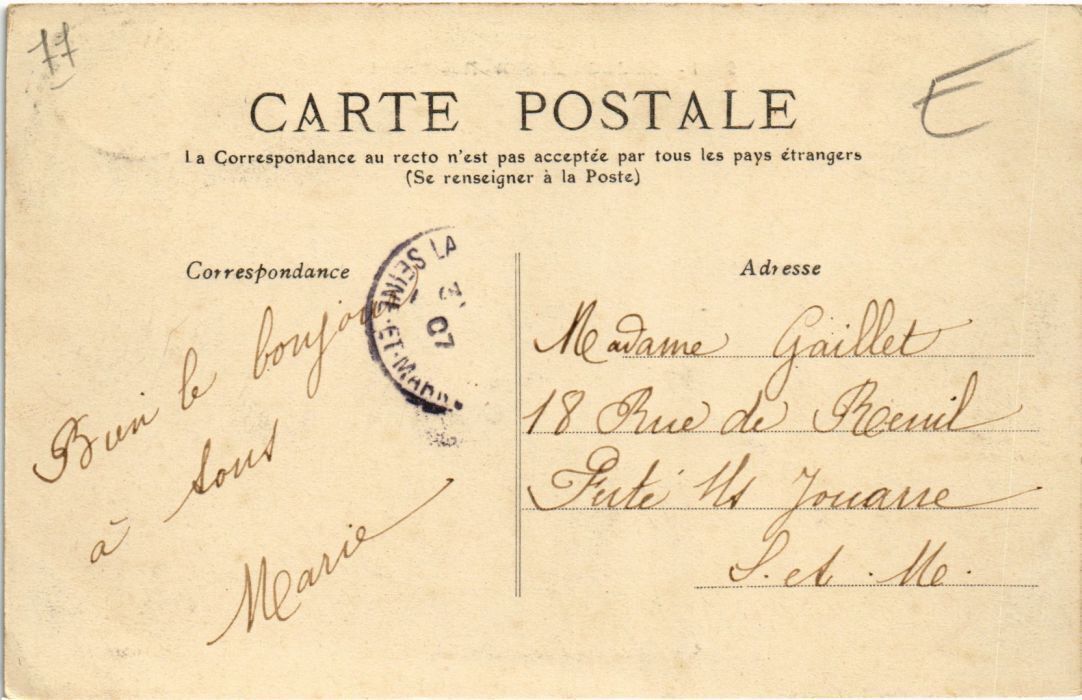 77
E
CARTE POSTALE
La Correspondance au recto n'est pas acceptée par tous les pays étrangers
(Se renseigner à la Poste)
Correspondance
Bien le bonjour
à tous
Marie
LA
SEINE-ET-MARN
07
Adresse
Madame Gaillet
18 Rue de Reuil
Ferté s/s Jouarre
S. et M.